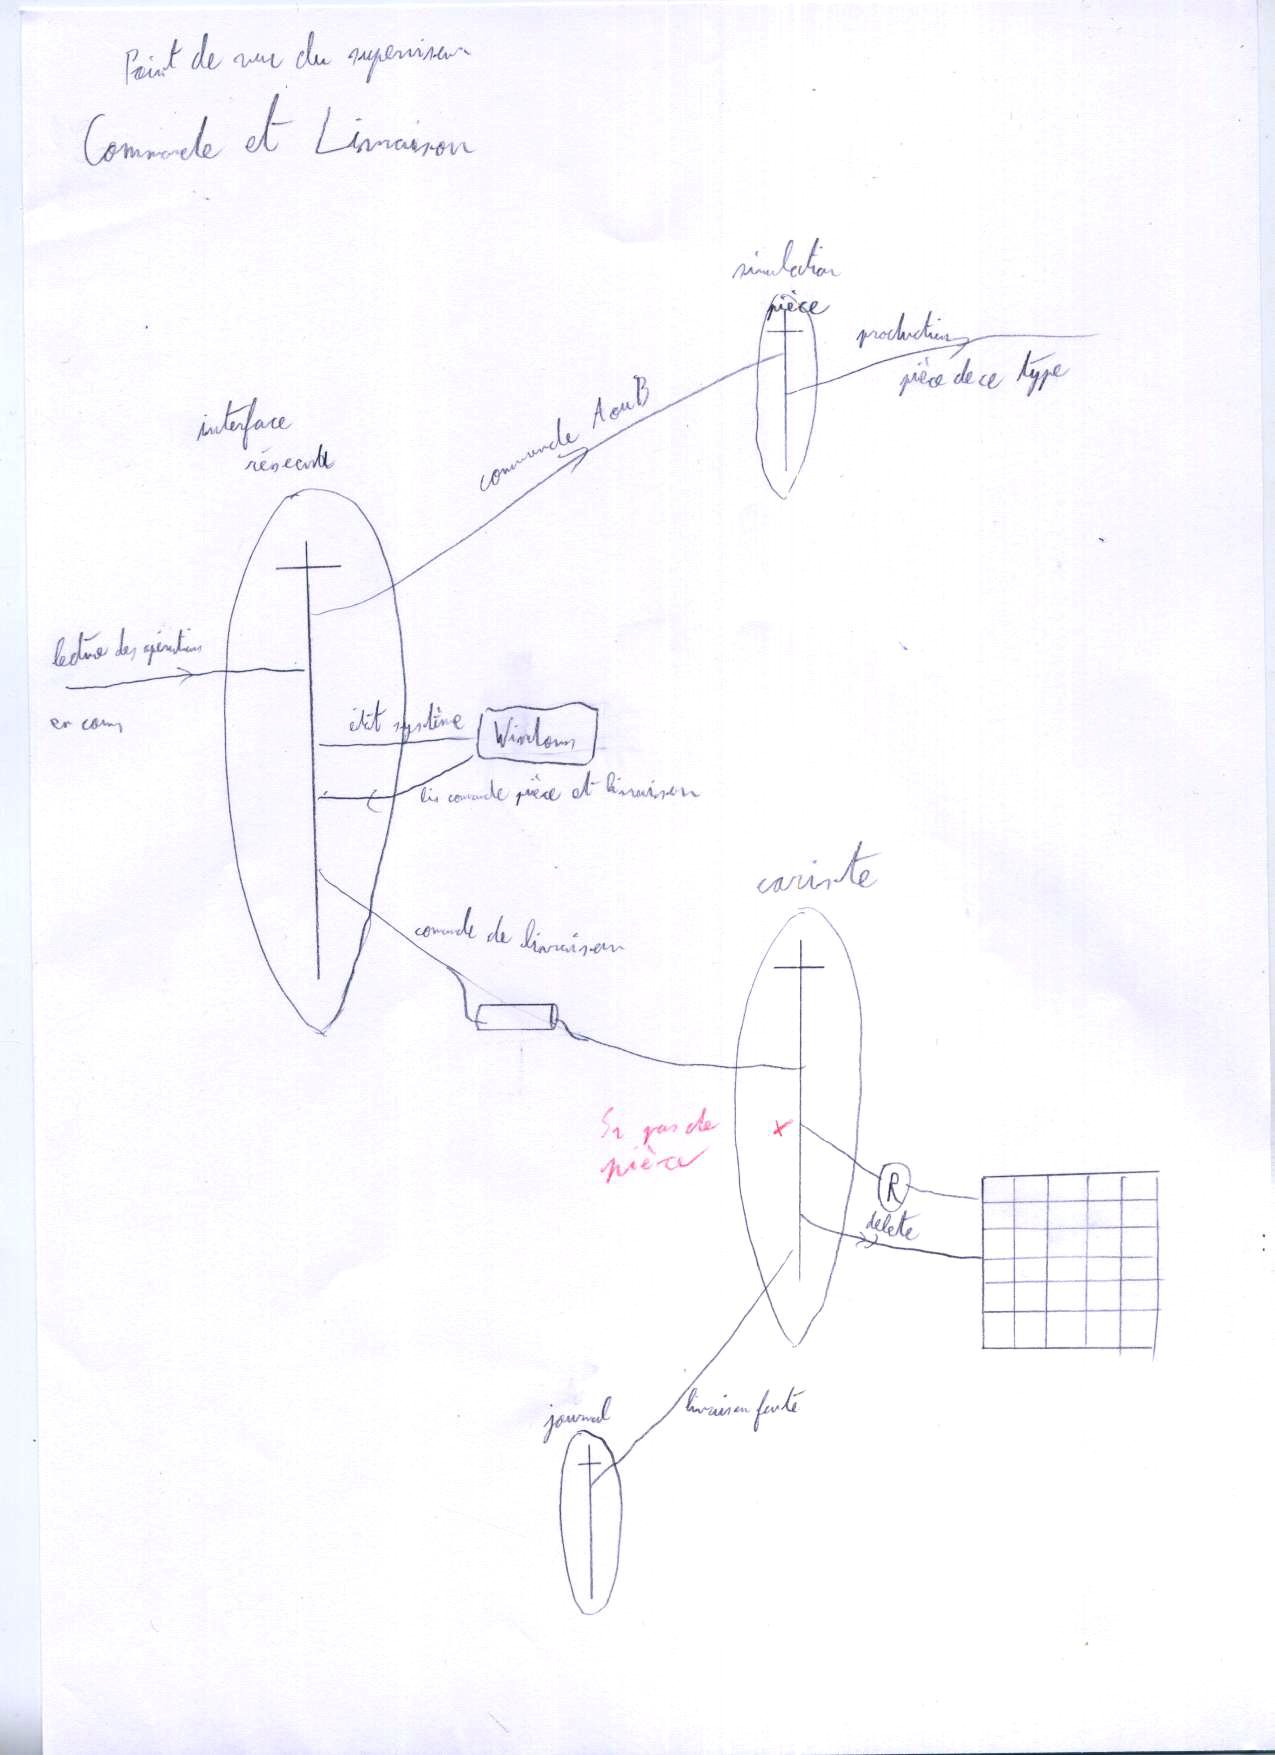 Point de vue du superviseur
Commande et Livraison
simulation
pièce
production
pièce de ce type
commande A ou B
interface
réseau
lecture des opérations
en cours
état système
Windows
lis commande pièce et livraison
cariste
comande de livraison
Si pas de
pièce
R
delete
livraison faite
journal